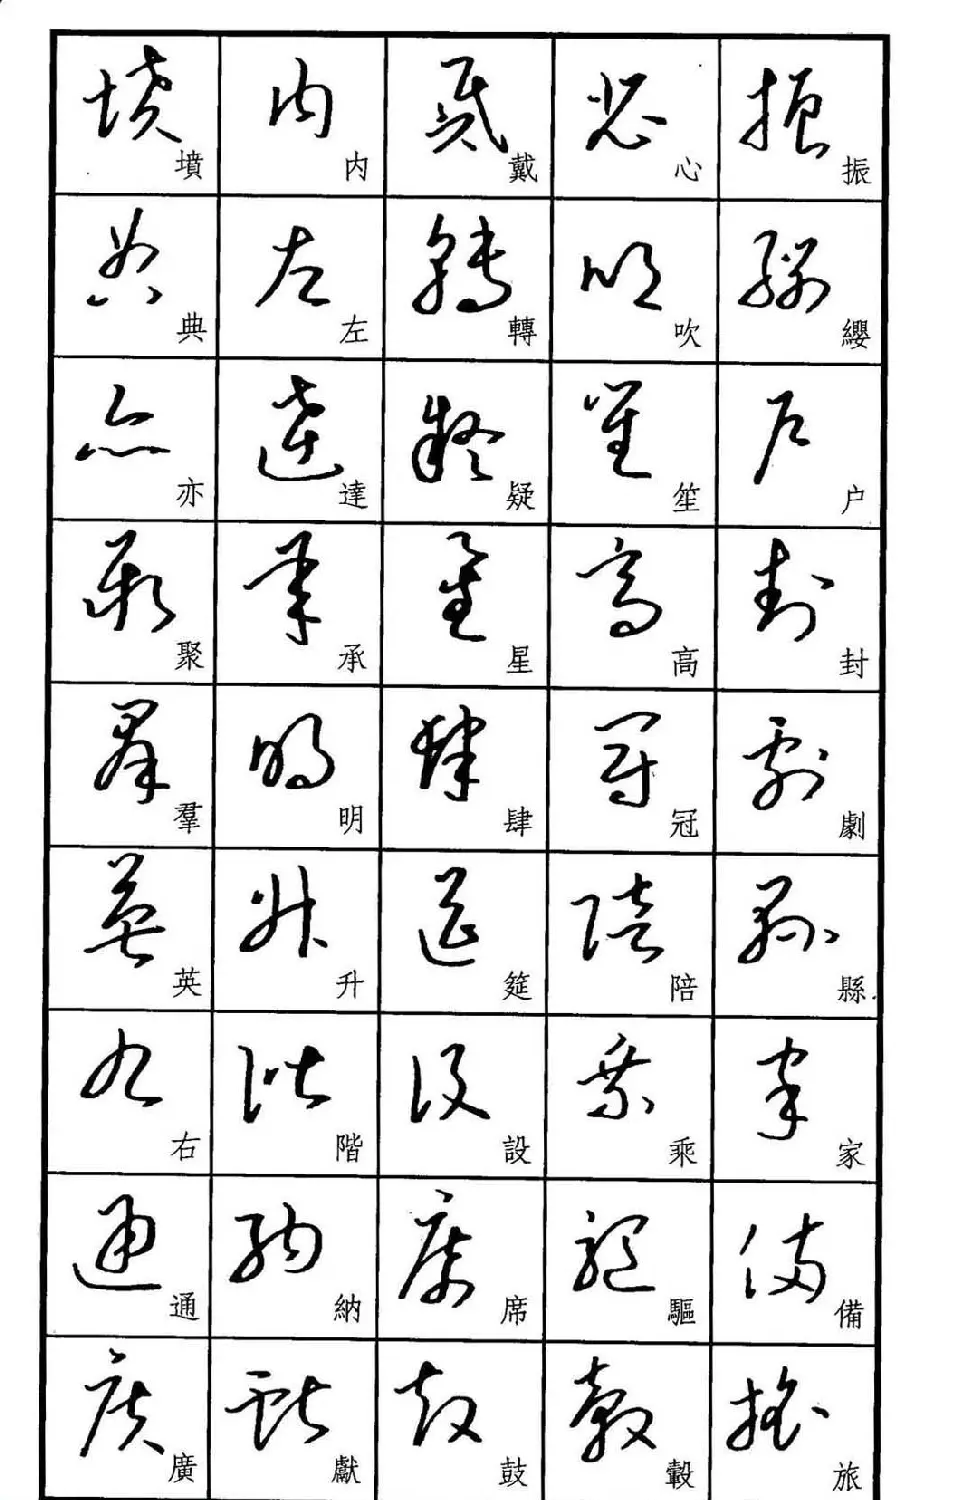 墳典亦聚羣英右通廣
内左達承明升階納獻
戴轉疑星肆筵設席鼓
心吹笙高冠陪乘驅轂
振纓户封劇縣家備旅